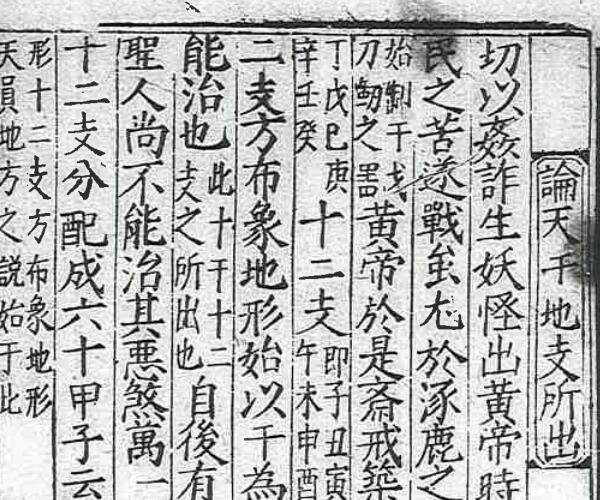 論天干地支所出
切以姦詐生妖怪出黃帝時
民之苦遂戰蚩尤於涿鹿之
始制干戈刀劒之噐黃帝於是齋戒築
丁戊己庚辛壬癸十二支即子丑寅午未申酉
二支方布象地形始以干為
能治也此十干十二支之所出也自後有
聖人尚不能治其惡煞萬一
十二支分配成六十甲子云
形十二支方布象地形
天員地方之說始于此